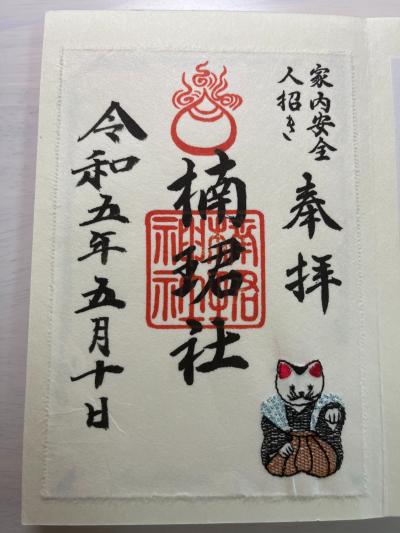 家内安全
人招き
奉拝
楠珺社
令和五年五月十日